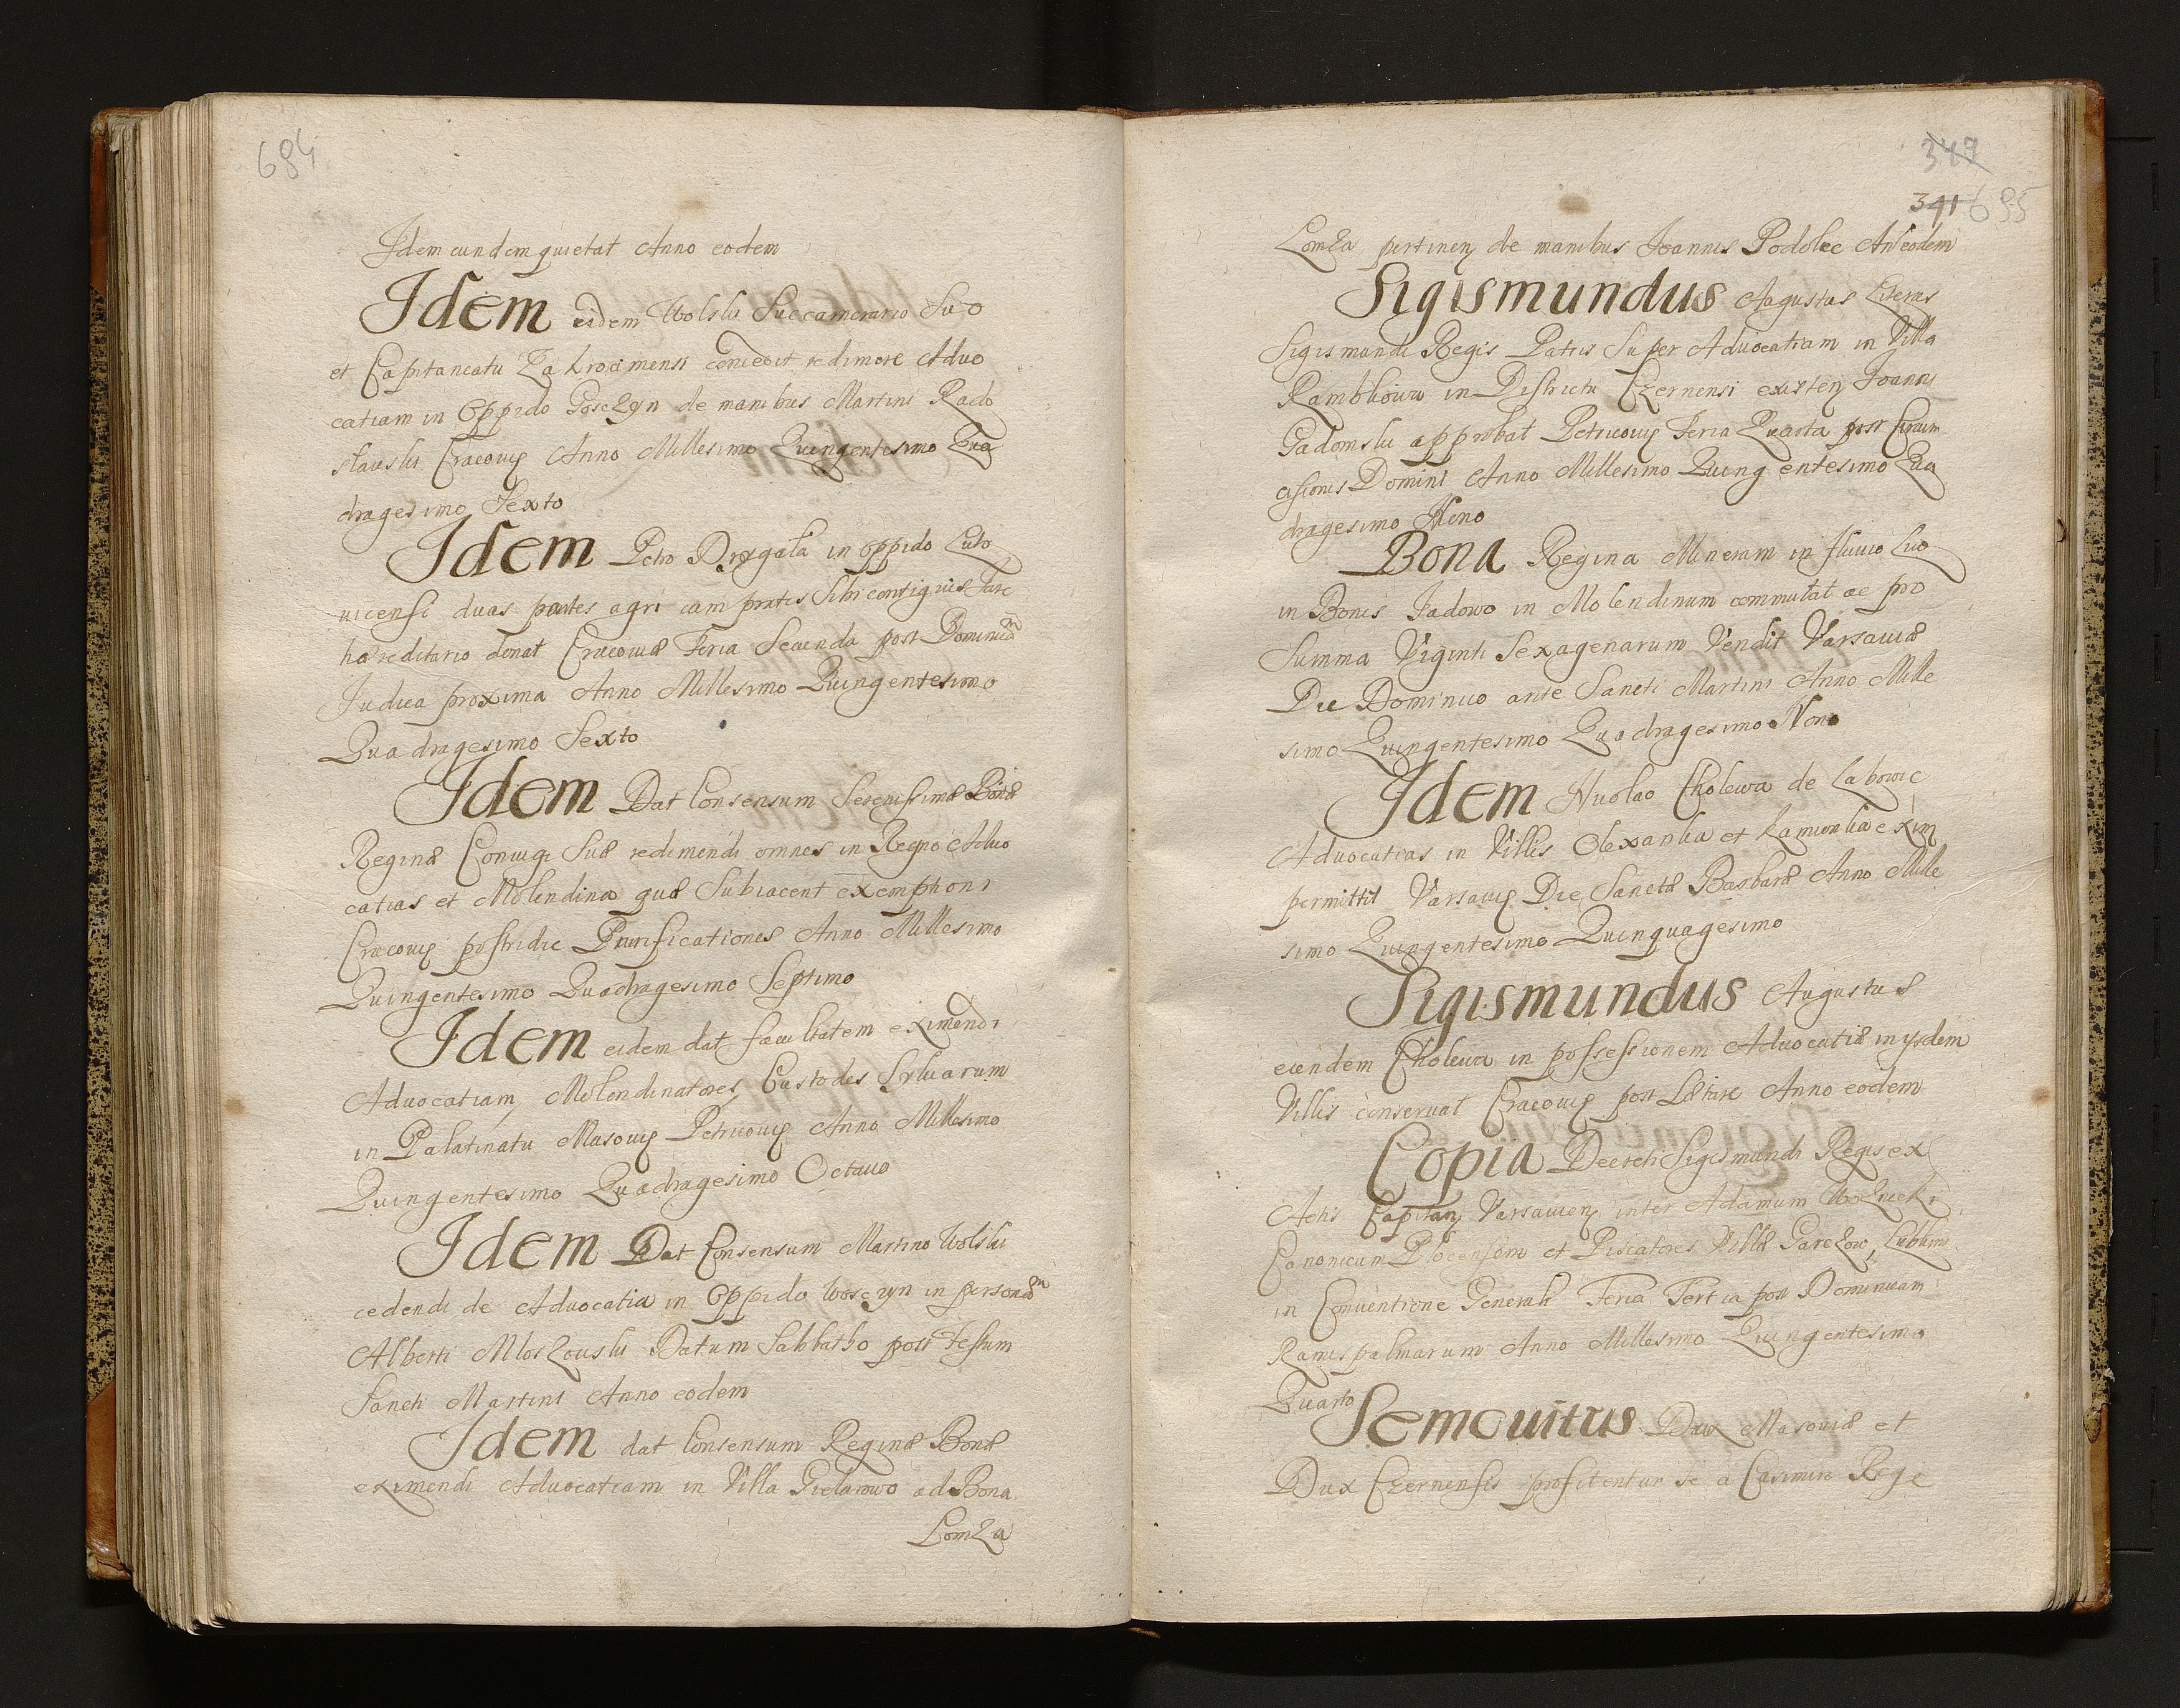 684
Idem eundem quietat Anno eodem
Idem eidem Wolski Succamerario Suo
et Capitaneatu Zakrocimensi concedit redimere Advo
catiam in Oppido Goselyn de manibus Martini Rado
slauski Cracouię Anno Millesimo Quingentesimo Qua
dragesimo Sexto
Idem Petro Drygała in oppido Luto
uicensi duas partes agri cum pratis Sibi contiguis Jure
hæreditario donat Cracouiæ Feria Secunda post Dominicam
Judica proxima Anno Millesimo Quingentesimo
Quadragesimo Sexto
Idem Dat Consensum Serenissimæ Bonæ
Reginæ Coniugi Suæ redimendi omnes in Regno Aduo
catias et Molendina quæ Subiacent exemptioni
Cracouię postridie Purificationes Anno Millesimo
Quingentesimo Quadragesimo Septimo
Idem eidem dat facultatem eximendi
Aduocatiam, Molendinatores, Custodes Syluarum
in Palatinatu Masouię Petricouię Anno Millesimo
Quingentesimo Quadragesimo Octauo
Idem Dat Consensum Martino Wolski
cedendi de Aduocatia in Oppido Woseyn in personam
Alberti Mloszouski Datum Sabbatho post Festum
Sancti Martini Anno eodem
Idem dat Consensum Reginæ Bonæ
eximendi Aduocatiam in Villa Gielarowo ad Bona
Lomza
347
341 695
Lomza pertinen de manibus Joannis Podolec Añ eodem
Sigismundus Augustus Literas
Sigismundi Regis Patris Super Aduocatiam in Villa
Rambkowu in Districtu Czernensi existen Joanni
Gadomski approbat Petricouię Feria Quarta post Circum
cisionis Domini Anno Millesimo Quingentesimo Qua
dragesimo Nono
Bona Regina Mineram in fluuio Liw
in Bonis Jadowo in Molendinum commutat ac pro
Summa Viginti Sexagenarum Vendit Varsauiæ
Die Dominico ante Sancti Martini Anno Mille
simo Quingentesimo Quadragesimo Nono
Idem Nicolao Cholewa de Labowic
Aduocatias in Villis Olexanka et Kamionka exim
permittit Varsauię Die Sanctæ Barbaræ Anno Mille
simo Quingentesimo Quinquagesimo
Sigismundus Augustus
eundem Cholewa in possessionem Aduocatiæ in ysdem
Villis conseruat Cracouię post Lætare Anno eodem
Copia Decreti Sigismundi Regis ex
Actis Capitan Varsauien inter Adamum Woznecki
Canonicum Plocensem et Piscatores Villæ Garczow, Lublini
in Conuentione Generali Feria Tertia post Dominicam
Ramis palmarum Anno Millesimo Quingentesimo
Quarto
Semouitus Dux Masouiæ et
Dux Czernensis profitentur se a Casimiro Rege